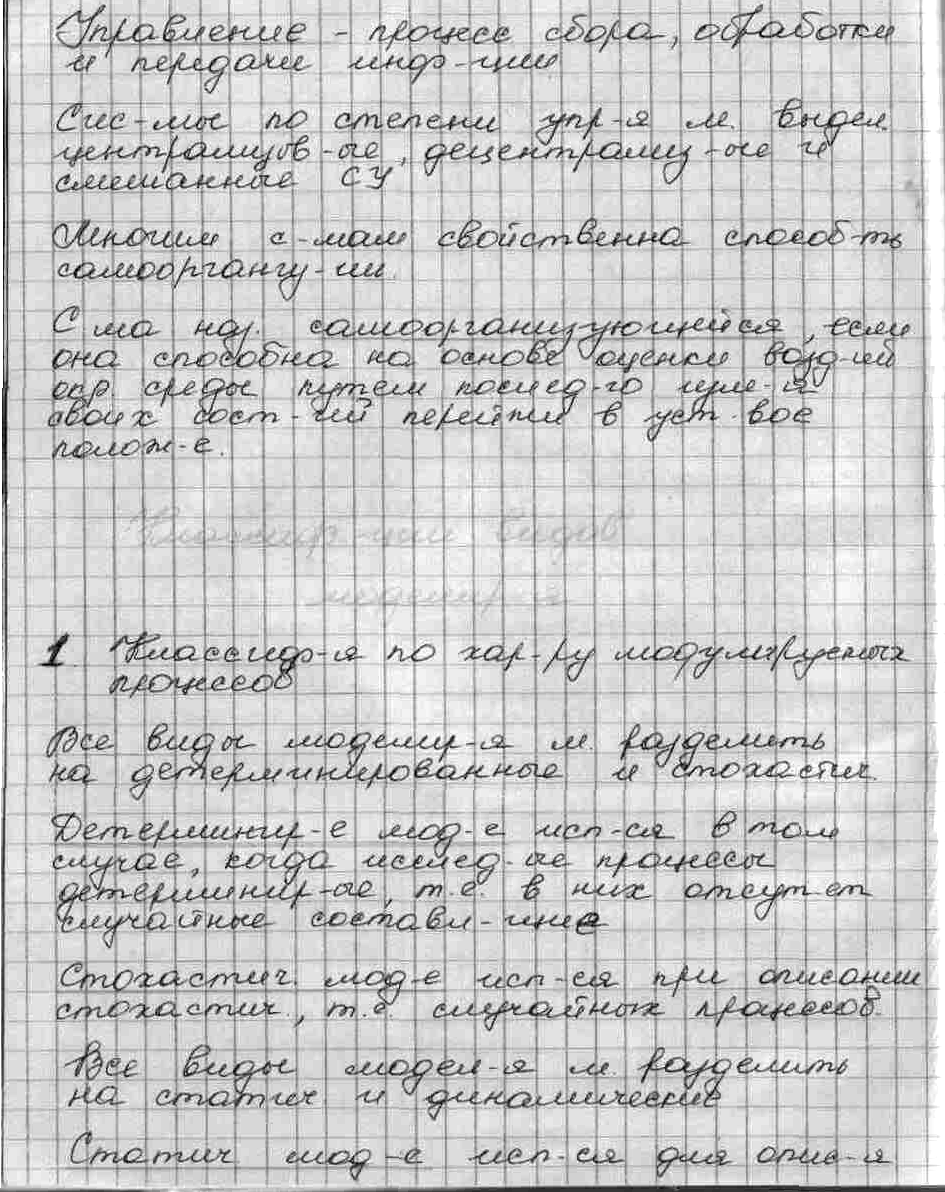 Управление - процесс сбора, обработки
и передачи инф-ции
Сис-мы по степени упр-я м. выдел.
централизов-ые, децентрализ-ые и
смешанные СУ
Многим с-мам свойственна способ-ть
самооргангу-ии.
С ма наз. самоорганизующейся, если
она способна на основе оценки возд-ий
окр. среды путем послед-го изме-я
своих сост-ий перейти в уст-вое
полож-е.
Классиф-ции видов
моделир-я
1 Классиф-я по хар-ру модулируемых
процессов
Все виды моделир-я м. разделить
на детерминированные и стохастич.
Детерминир-е мод-е исп-ся в том
случае, когда исслед-ые процессы
детерминир-ые, т.е. в них отсут-ет
случайные составл-щие
Стохастич. мод-е исп-ся при описании
стохастич., т.е. случайных процессов.
Все виды модел-я м. разделить
на статич. и динамические
Статич мод-е исп-ся для опис-я